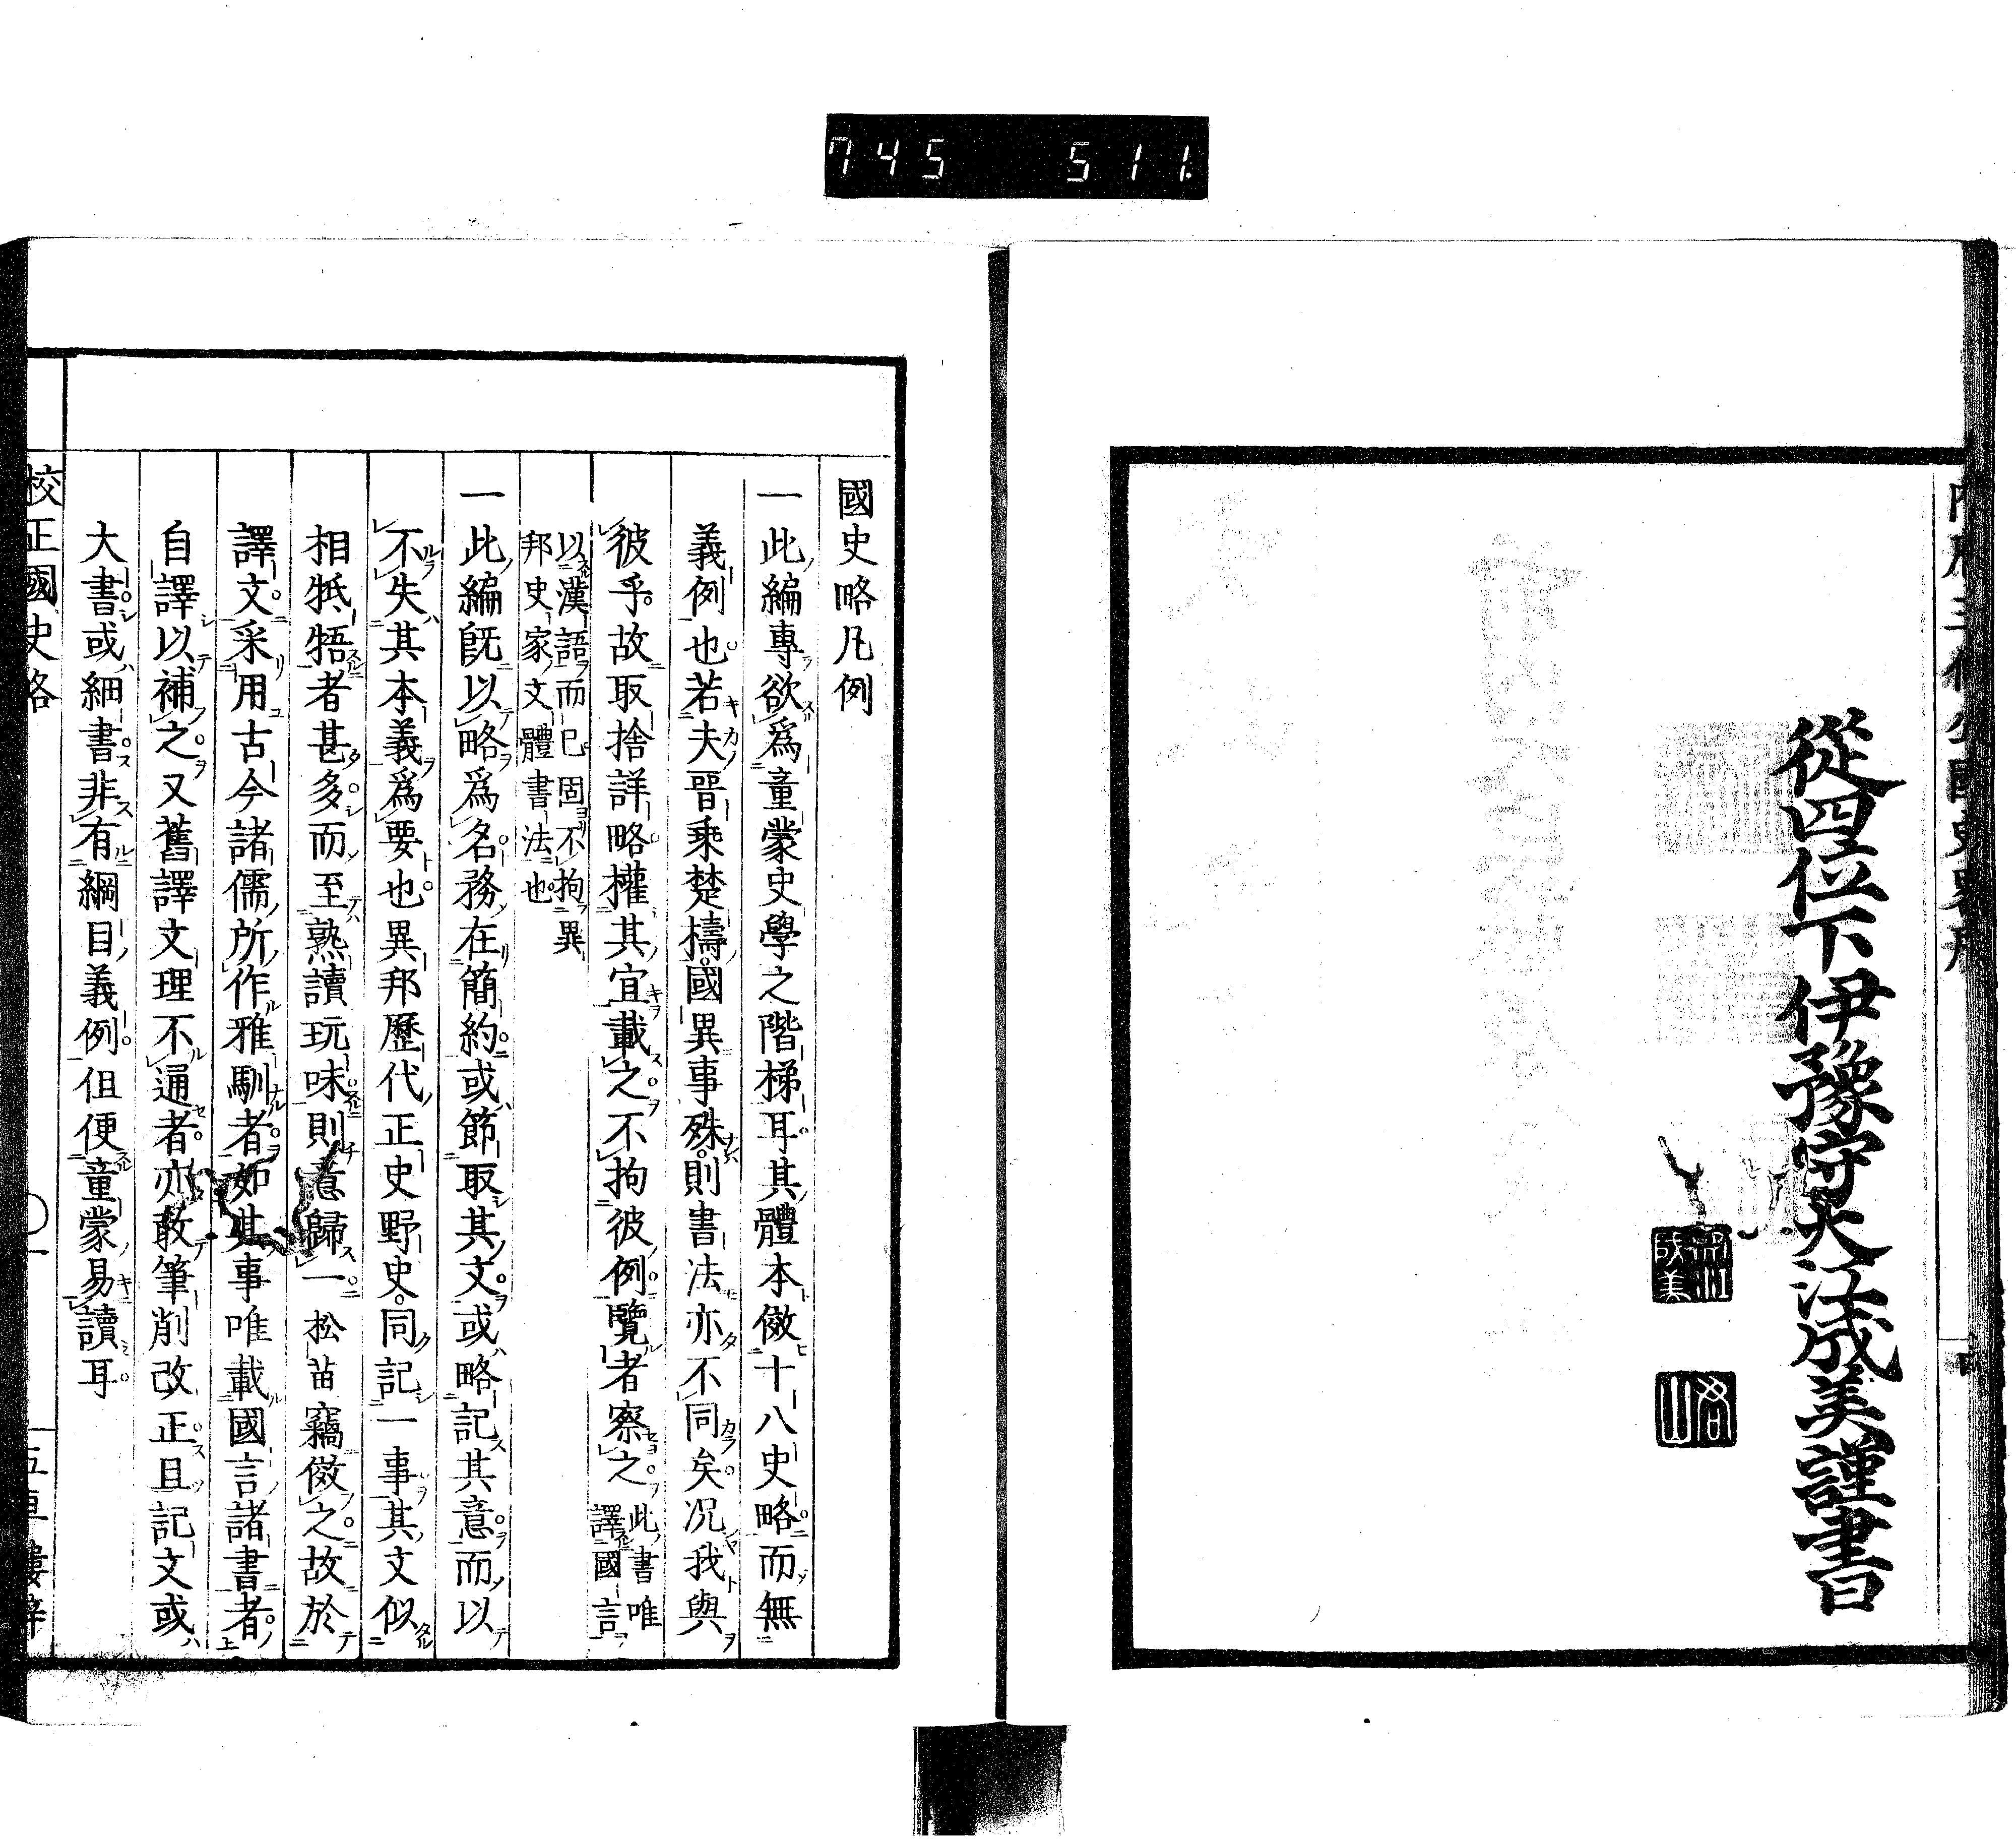 745 511.
從四位下伊豫守大江成美謹書
國史略凡例
一此編專欲爲童蒙史學之階梯耳其體本倣十八史略而無
義例也若夫晉乘楚檮國異事殊則書法亦不同矣况我與
彼乎故取捨詳略權其宜載之不拘彼例覽者察之此書唯譯國言
以漢語而已固不拘異
邦史家文體書法也
一此編既以略爲名務在簡約或節取其文或略記其意而以
不失其本義爲要也異邦歷代正史野史同記一事其文似
相牴牾者甚多而至熟讀玩味則意歸一松苗竊倣之故於
譯文采用古今諸儒所作雅馴者如其事唯載國言諸書者
自譯以補之又舊譯文理不通者亦敢筆削改正且記文或
大書或細書非有綱目義例但便童蒙易讀耳
校正國史略